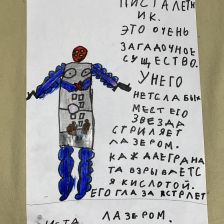 ПИСТАЛЕТН
ИК.
ЭТО ОЧЕНЬ
ЗАГАДОЧНОЕ
СУЩЕСТВО.
У НЕГО
НЕТ СЛАБЫХ
МЕСТ ЕГО
ЗВЕЗДА
СТРИЛЯЕТ
ЛАЗЕРОМ.
КАЖДАЯ ГРАНА
ТА ВЗРЫВАЕТС
Я КИСЛОТОЙ.
ЕГО ГЛАЗА
ЛАЗЕРОМ.